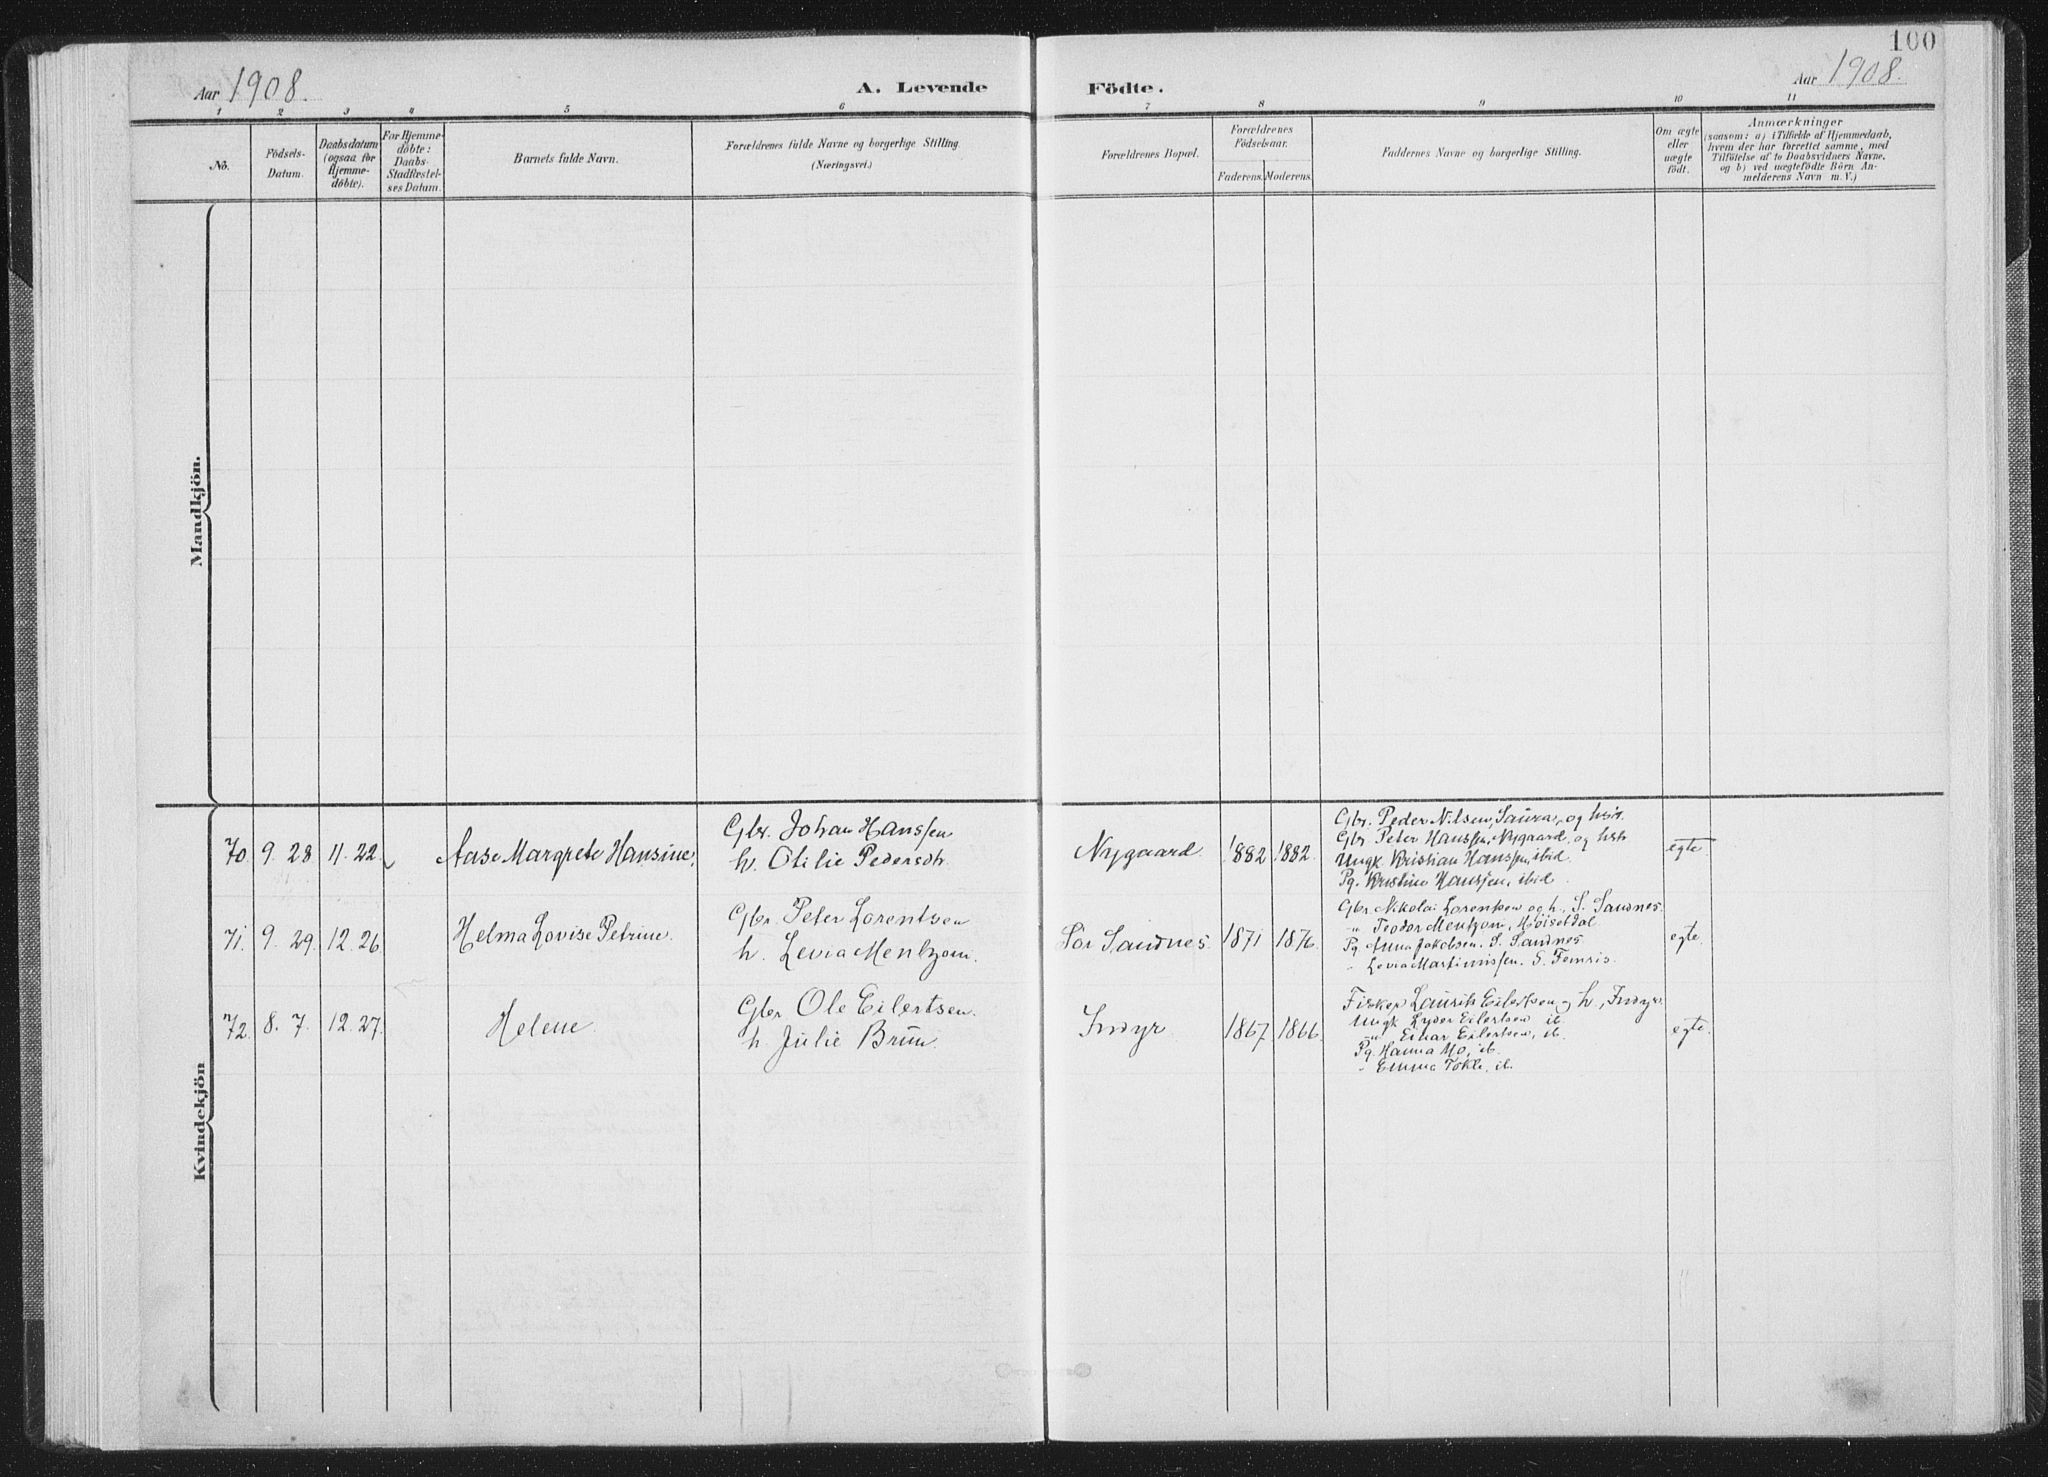 100
Aar 1908.
A. Levende
Födte.
Aar 1908.
1 2 3 4 5 6 7 8 9 10 11
No.
Födsels-
Datum.
Daabsdatum
(ogsaa for
Hjemme-
döbte).
For Hjemme-
döbte:
Daabs-
Stadfæstel-
ses Datum.
Barnets fulde Navn.
Forældrenes fulde Navne og borgerlige Stilling.
(Næringsvei.)
Forældrenes Bopæl.
Forældrenes
Födselsaar.
Faderens. Moderens.
Faddernes Navne og borgerlige Stilling.
Om ægte
eller
uægte
födt.
Anmærkninger
(saasom: a) i Tilfælde af Hjemmedaab,
hvem der har forrettet samme, med
Tilföielse af to Daabsvidners Navne,
og b) ved uægtefödte Börn An-
melderens Navn m. V.)
Mandkjön.
Kvindekjön
70. 9. 28 11. 22. Aase Margrete Hansine.
Gbr. Johan Hanssen
h. Otilie Pedersdtr.
Nygaard. 1882 1882.
Gbr. Peder Nilsen, Saura, og hstr.
Gbr. Peter Hanssen, Nygaard, og hstr
Ungk. Kristian Hanssen, ibid.
Pg. Kristine Hanssen, ibid.
egte.
71. 9. 29. 12. 26. Helma Lovise Petrine.
Gbr. Peter Lorentsen
h. Levia Mentzoni.
Sör Sandnes. 1871 1876.
Gbr. Nikolai Lorentsen og h., S. Sandnes.
" Teodor Mentzoni, Möisetdal
Pg. Anna Jakobsen. S. Sandnes
" Levia Martinussen. S. Femris.
egte.
72. 8. 7. 12. 27. Helene.
Gbr. Ole Eilertsen.
h. Julie Brun.
Indyr. 1867. 1866.
Fisker Laurits Eilertsen og h., Indyr.
Ungk Lyder Eilertsen ib
" Einar Eilertsen, ib.
Pg. Hanna Mo, ib.
" Emma Tokle, ib.
egte.